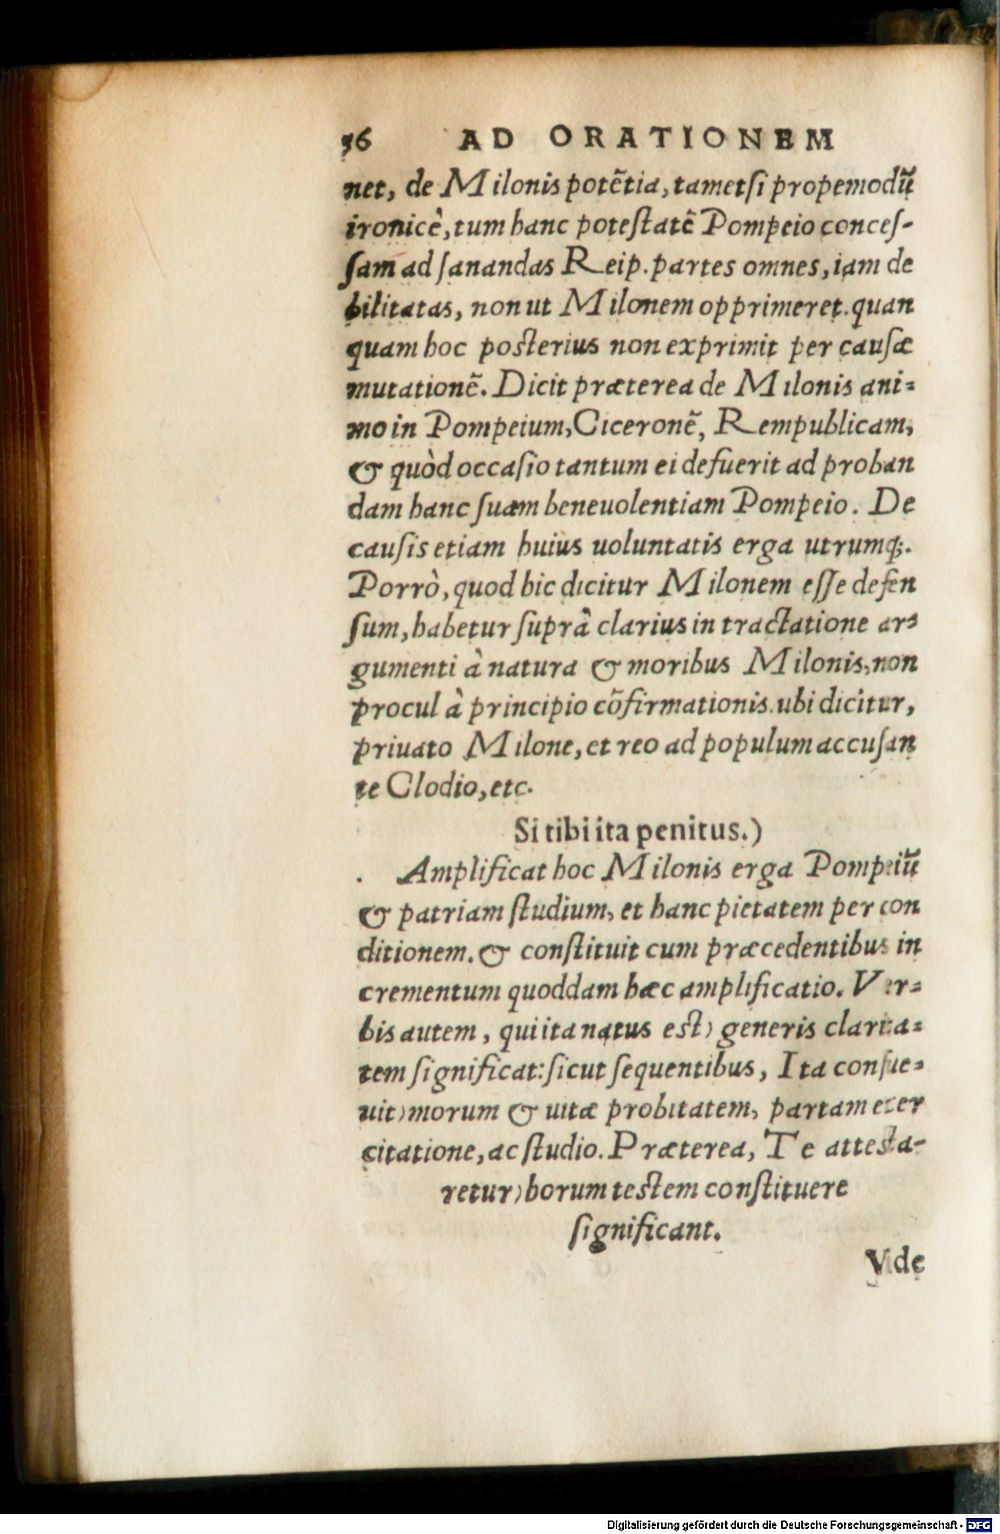 56 AD ORATIONEM
net, de Milonis potẽtia, tametſi propemodũ
ironicè, tum hanc poteſtatẽ Pompeio conceſ-
ſam ad ſanandas Reip. partes omnes, iam de
bilitatas, non ut Milonem opprimeret. quan
quam hoc poſterius non exprimit per cauſæ
mutationẽ. Dicit præterea de Milonis ani=
mo in Pompeium, Ciceronẽ, Rempublicam,
& quòd occaſio tantum ei defuerit ad proban
dam hanc ſuam beneuolentiam Pompeio. De
cauſis etiam huius uoluntatis erga utrumq;.
Porrò, quod hic dicitur Milonem eſſe defen
ſum, habetur ſuprà clarius in tractatione ar=
gumenti à natura & moribus Milonis, non
procul à principio cõfirmationis. ubi dicitur,
priuato Milone, et reo ad populum accuſan
te Clodio, etc.
Si tibi ita penitus.)
Amplificat hoc Milonis erga Pompeiũ
& patriam ſtudium, et hanc pietatem per con
ditionem. & conſtituit cum præcedentibus in
crementum quoddam hæc amplificatio. Ver=
bis autem, qui ita natus eſt) generis clarita=
tem ſignificat: ſicut ſequentibus, Ita conſue=
uit) morum & uitæ probitatem, partam exer
citatione, ac ſtudio. Præterea, Te atteſta-
retur) horum teſtem conſtituere
ſignificant.
Vide
Digitalisierung gefördert durch die Deutsche Forschungsgemeinschaft - DFG